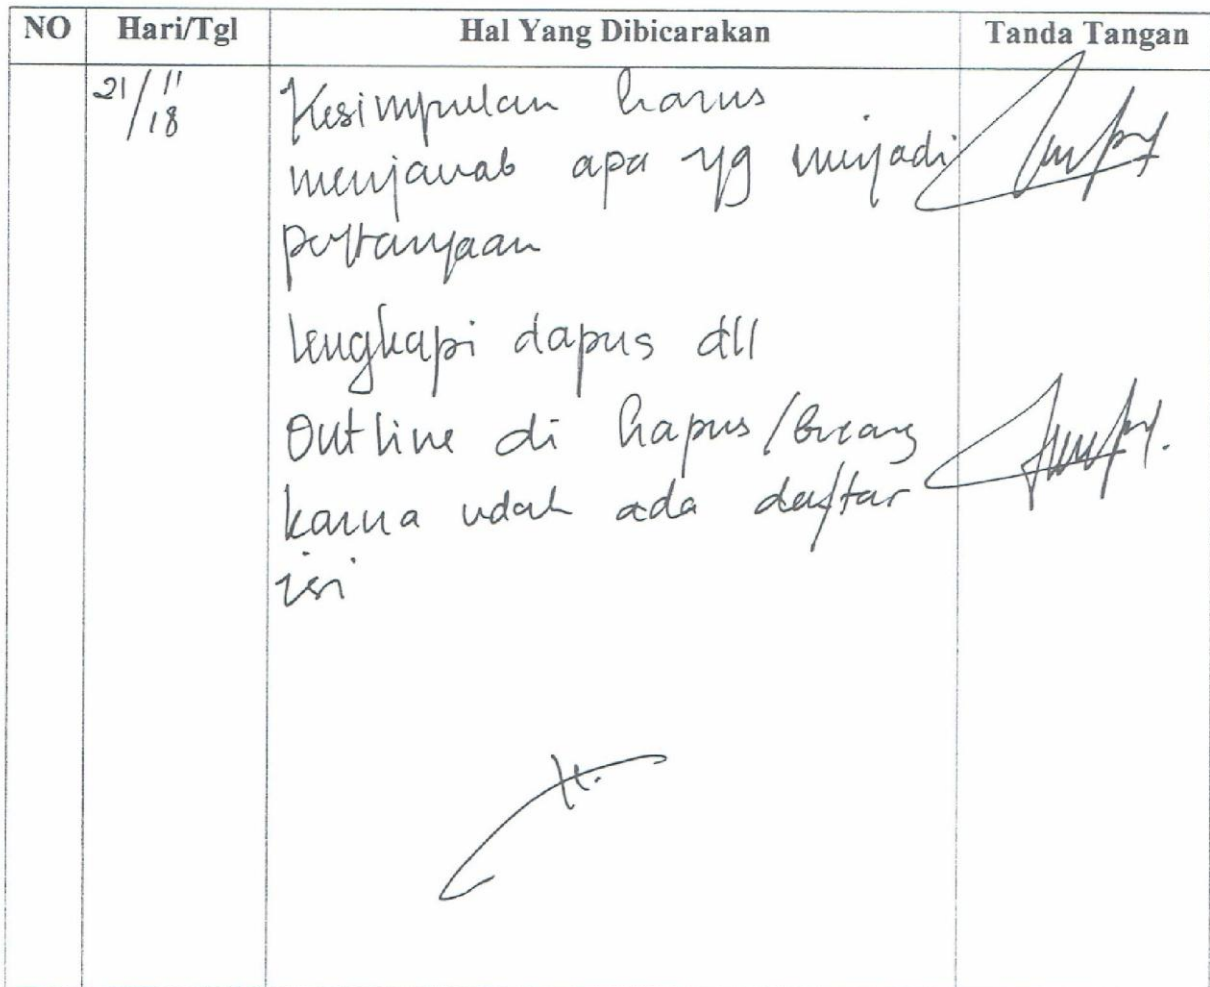 NO Hari/Tgl Hal Yang Dibicarakan Tanda Tangan
21/11/18 Kesimpulan harus
menjawab apa yg menjadi
pertanyaan
lengkapi dapus dll
Outline di hapus/buang
karna udah ada daftar
isi